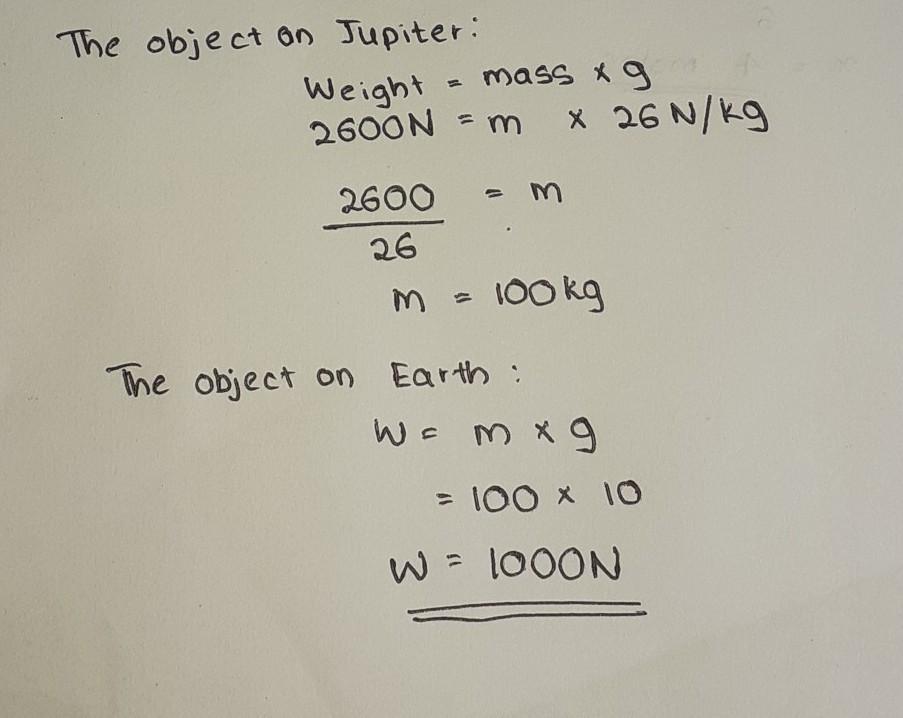 The object on Jupiter:
Weight = mass x g
2600N = m x 26 N/kg
2600 = m
26
m = 100kg
The object on Earth :
W = m x g
= 100 x 10
W = 1000N